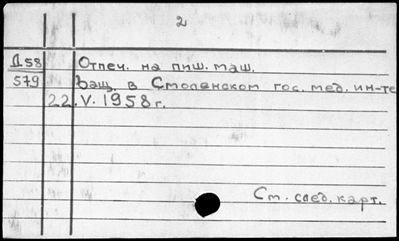 2
Д58 Отпеч. на пиш. маш.
579 Защ. в Смоленском гос. мед. ин-те
22.V.1958г.
См. след. карт.